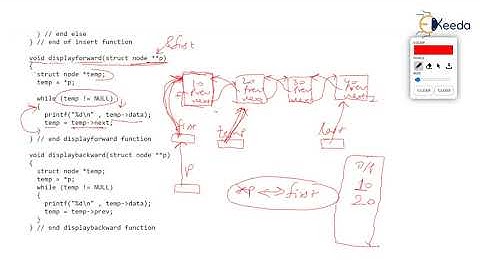 } // end else
} // end of insert function
void displayforward(struct node **p)
{
struct node *temp;
temp = *p;
while (temp != NULL)
{
printf("%d\n" , temp->data);
temp = temp->next;
}
} // end displayforward function
void displaybackward(struct node **p)
{
struct node *temp;
temp = *p;
while (temp != NULL)
{
printf("%d\n" , temp->data);
temp = temp->prev;
}
} // end displaybackward function
&first
10 20 30 40
prev prev prev prev
next next next next
first temp last
P
*p <-> first
o/p
10
20
Ekeeda